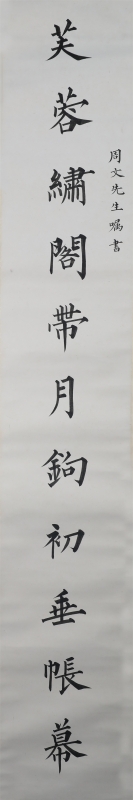 周文先生嘱書
芙蓉繡閣帶月鉤初垂帳幕